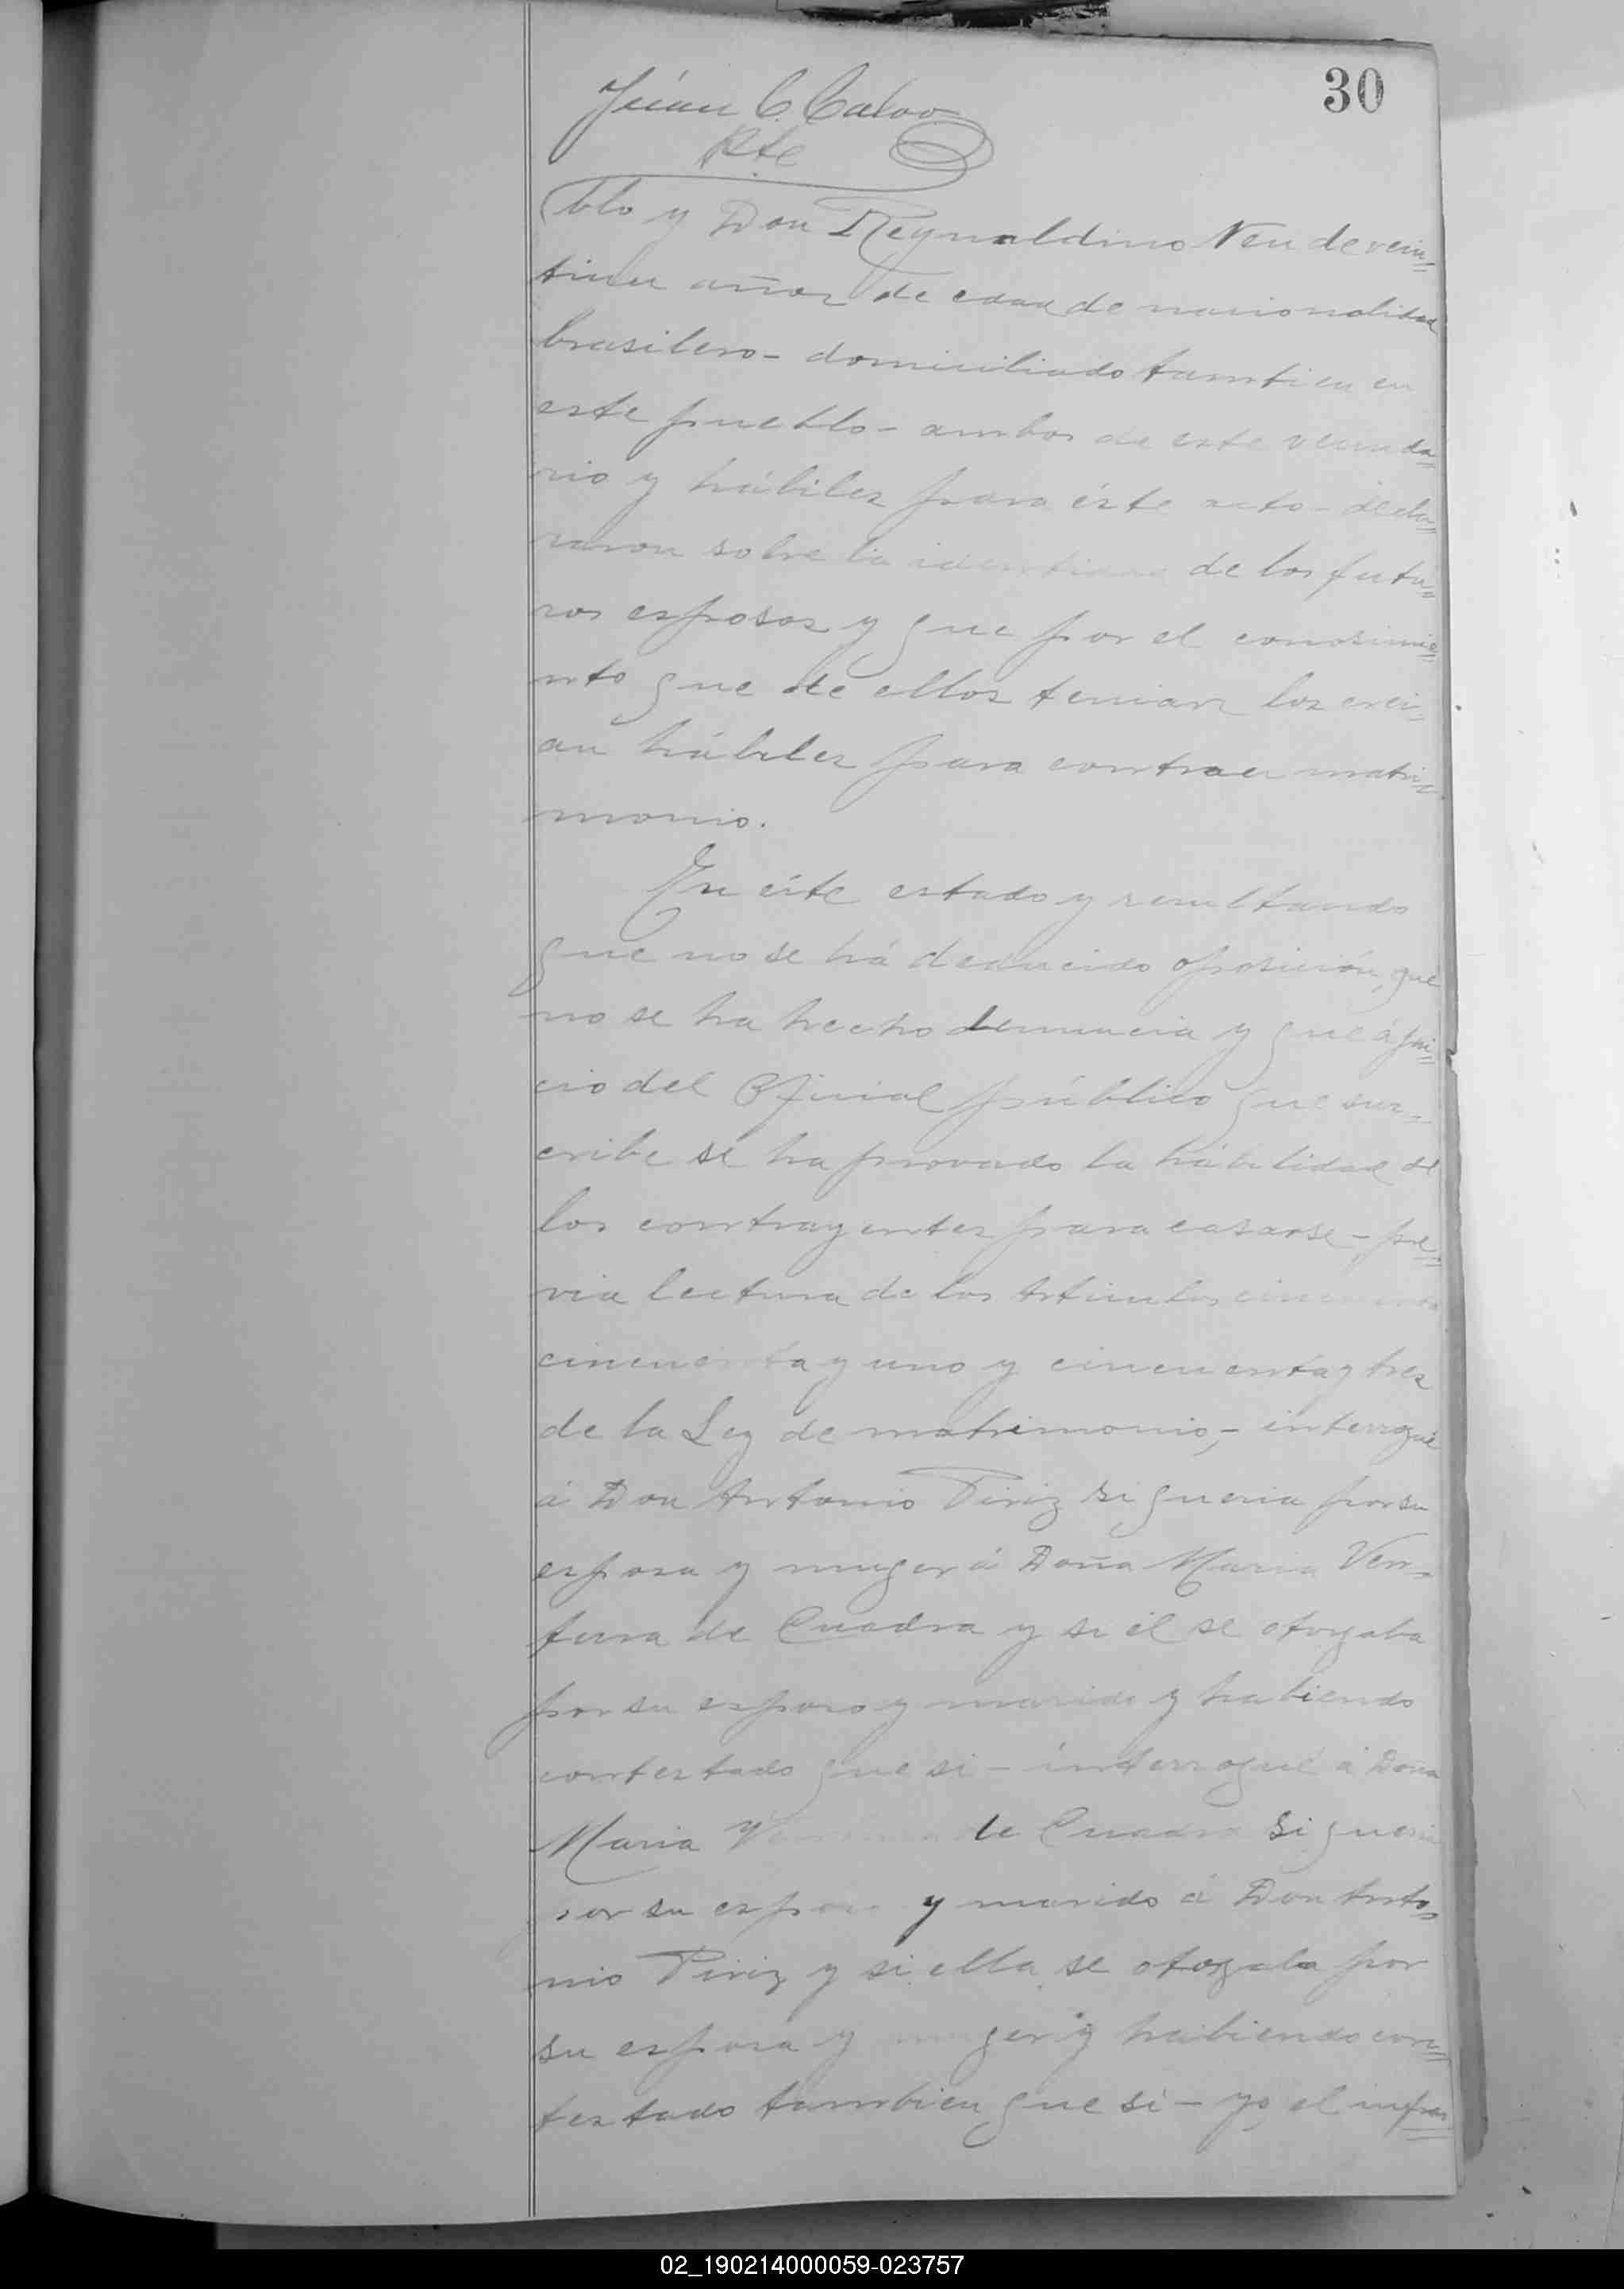 30
Juan C. Calvo
Pte
blo y Don Reynaldino Neu de vein=
tiun años de edad de nacionalidad
brasilero - domiciliado tambien en
este pueblo - ambos de este vecinda=
rio y hábiles para éste acto - decla=
raron sobre la identidad de los futu=
ros esposos y que por el conosimie=
nto que de ellos tenian los crei=
an hábiles para contraer matri=
monio.
En éste estado y resultando
que no se há deducido oposición, que
no se ha hecho denuncia y que á jui=
cio del Oficial público que sus=
cribe se ha provado la habilidad de
los contrayentes para casarse - pre=
via lectura de los Articulos cincuenta
cincuenta y uno y cincuenta y tres
de la Ley de matrimonio, - interrgué
á Don Antonio Piriz si queria por su
esposa y muger á Doña Maria Ven=
tura de Cuadra y si él se otorgaba
por su esposo y marido y habiendo
contestado que si - interrogué á Doña
Maria de Cuadra si queria
por su esposo y marido á Don Anto=
nio Piriz y si ella se otorgaba por
su esposa y muger y habiendo con=
testado tambien que si - yo, el infras
02_190214000059-023757